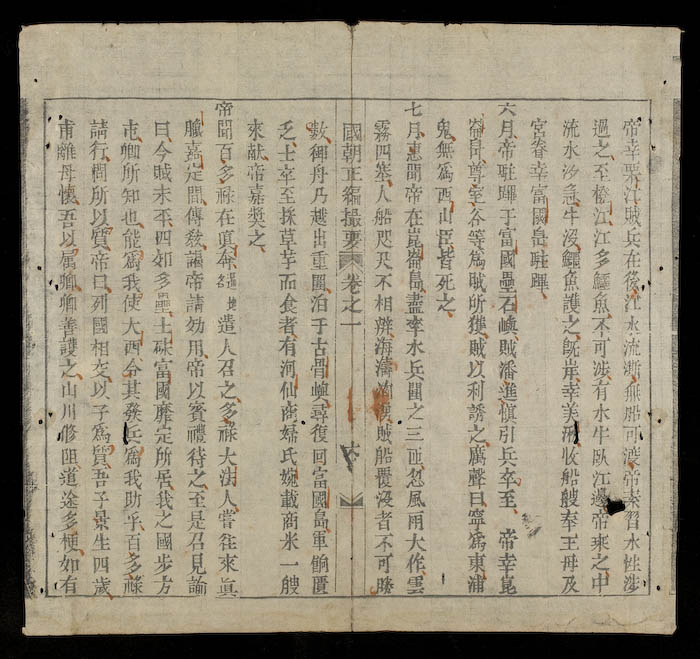 帝幸栗江賊兵在後江水流漸無船可渡帝素習水性涉
過之至橙江江多鱷魚不可涉有水牛臥江邊帝乘之中
流水汐急牛沒鱷魚護之旣岸幸美收船艘奉王母及
宮眷幸富國島駐蹕
六月帝駐蹕于富國壘石嶼賊潘進慎引兵卒至 帝幸崑
崙島尊室谷等爲賊所獲賊以利誘之厲聲曰寧爲東浦
鬼無爲西山臣皆死之
七月惠聞帝在崑崙島盡率水兵圍之三匝忽風雨大作雲
霧四塞人船咫尺不相辨海濤洶湧賊船覆沒者不可勝
國朝正編撮要 卷之一
數御舟乃越出重圍泊于古骨嶼尋復回富國島軍餉匱
乏士卒至採草芋而食者有河仙商婦氏婉載商米一艘
來獻帝嘉奬之
帝聞百多祿在眞奔暹地名遣人召之多祿大法人嘗往來眞
臘嘉定間傳教謳帝請効用帝以賓禮待之至是召見諭
曰今賊未平四如多壘土硃富國靡定所居我之國步方
屯卿所知也能爲我使大西令其發兵爲我助乎百多祿
請行問所以質帝曰列國相交以子爲質吾子景生四歲
甫離母懷吾以屬卿卿善護之山川修阻道途多梗如有